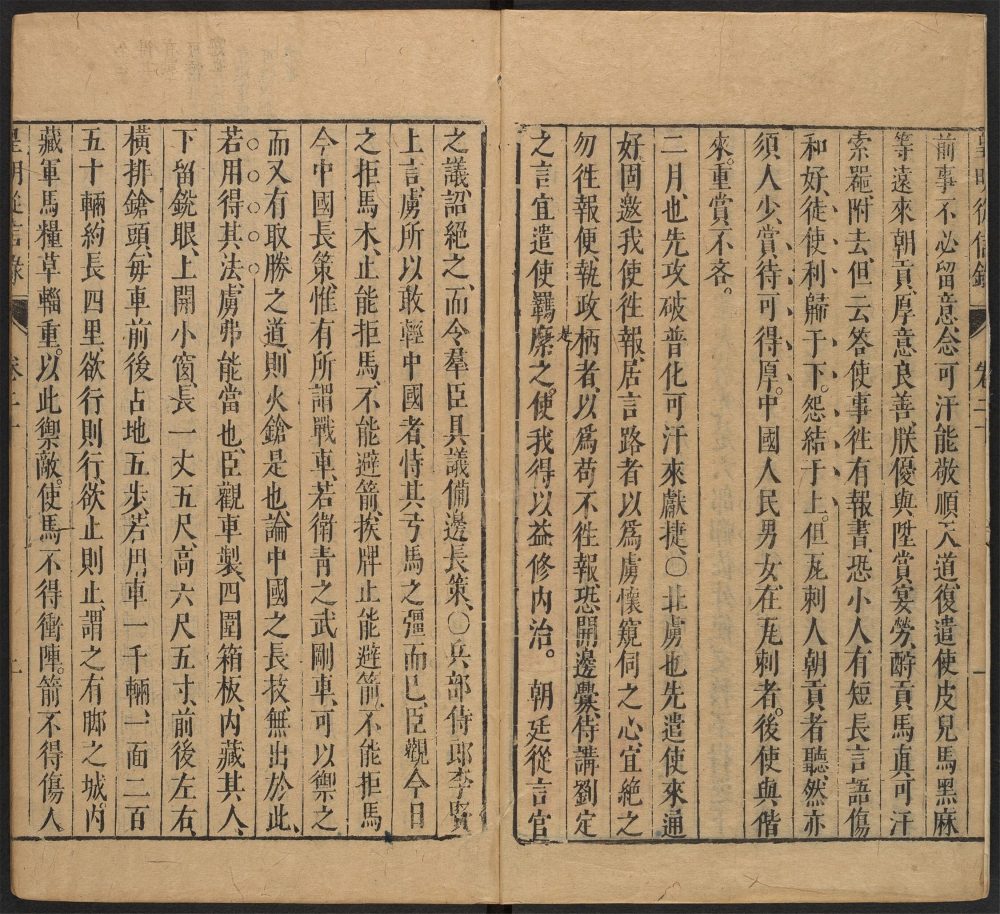 皇明從信錄　卷二十
前事不必留意念可汗能敬順天道復遣使皮兒馬黑麻
等遠來朝貢厚意良善朕優與陞賞宴勞酧貢馬真可汗
索罷附去但云答使事徃有報書恐小人有短長言語傷
和好徒使利歸于下怨結于上但瓦剌人朝貢者聽然亦
須人少賞待可得厚中國人民男女在瓦剌者後使與偕
來重賞不吝。
二月也先攻破普化可汗來獻捷〇北虜也先遣使來通
好固邀我使徃報居言路者以爲虜懷窺伺之心宜絶之
勿徃報便執政柄者以爲苟不徃報恐開邊釁侍講劉定
是
之言宜遣使羈縻之使我得以益修内治。　朝廷從言官
之議詔絶之而令羣臣具議備邊長策〇兵部侍郎李賢
上言虜所以敢輕中國者恃其弓馬之彊而已臣觀今日
之拒馬木止能拒馬不能避箭挨牌止能避箭不能拒馬
今中國長策惟有所謂戰車若衛青之武剛車可以禦之
而又有取勝之道則火鎗是也論中國之長技無出於此
若用得其法虜弗能當也臣觀車製四圍箱板内藏其人
下留銃眼上開小窗長一丈五尺高六尺五寸前後左右
橫排鎗頭每車前後占地五步若用車一千輛一面二百
五十輛約長四里欲行則行欲止則止謂之有脚之城内
藏軍馬糧草輜重以此禦敵使馬不得衝陣箭不得傷人
皇明從信錄　卷二十